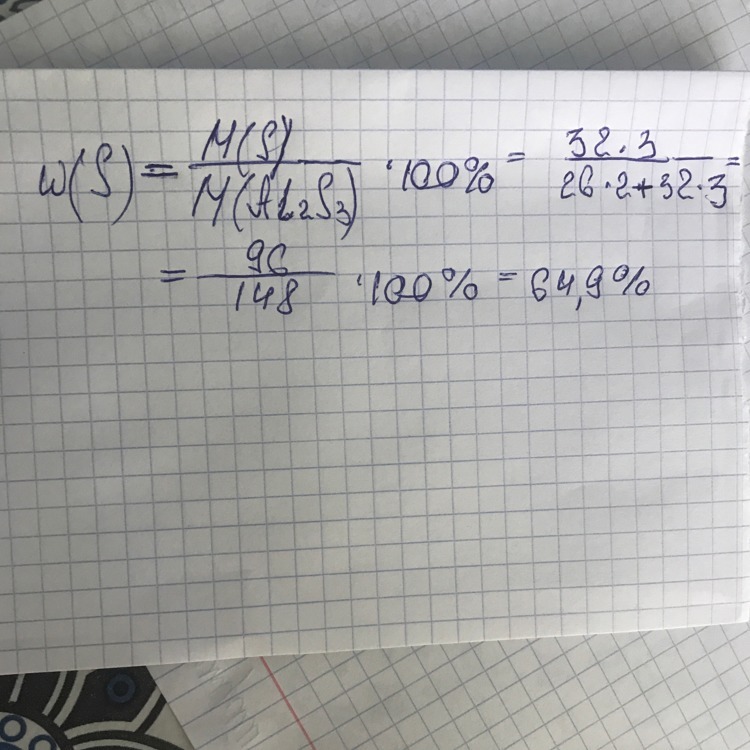 w(S) = M(S) / M(Al₂S₃) · 100% = 32·3 / 26·2+32·3 =
= 96 / 148 · 100% = 64,9%